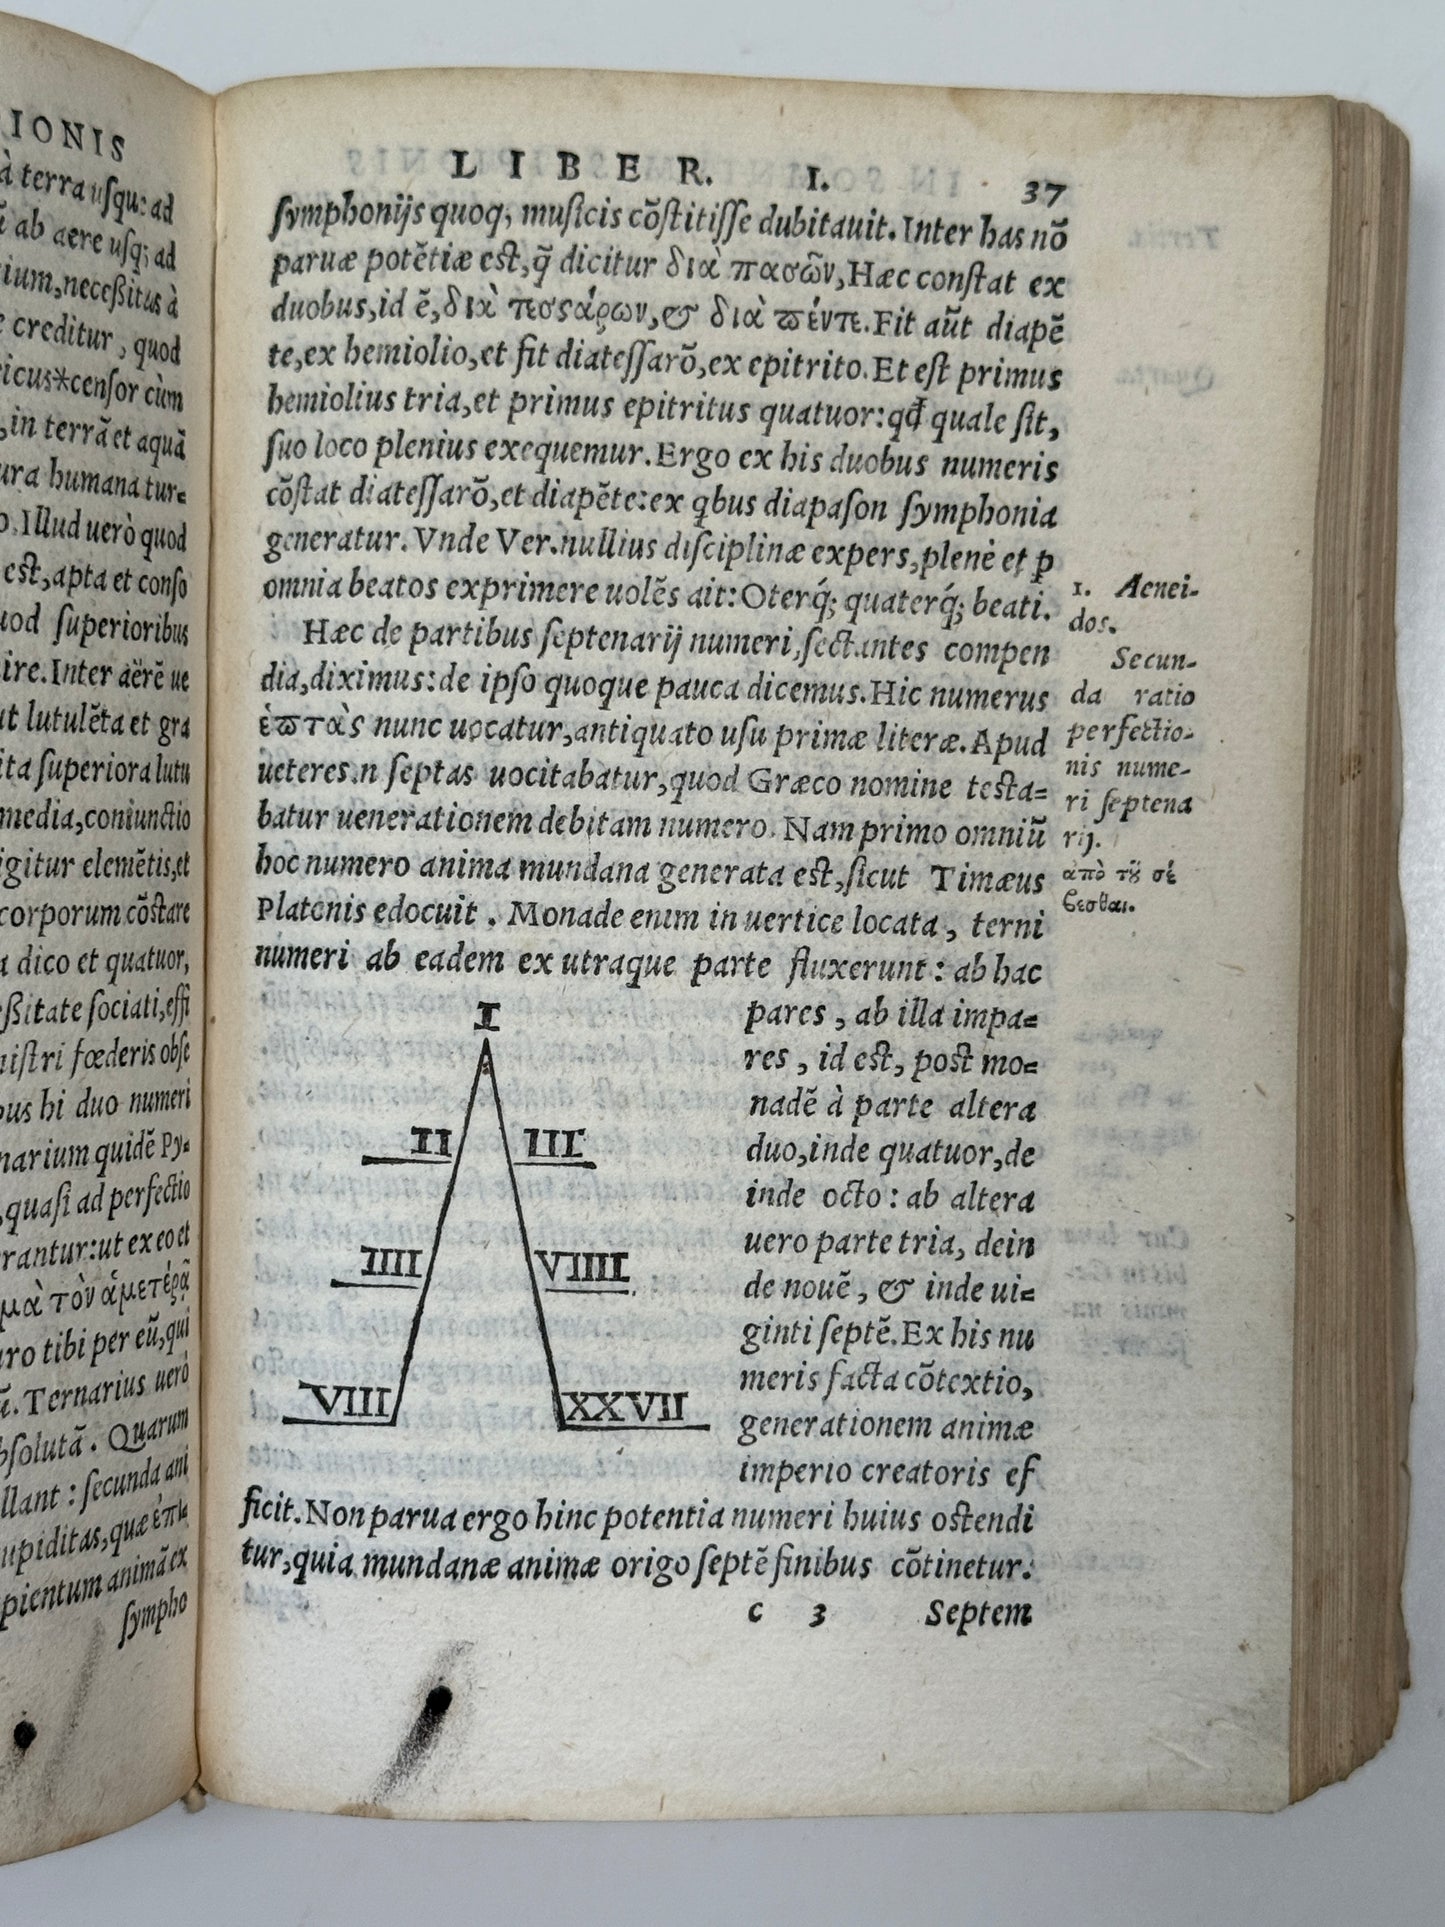 IONIS
à terra usqu: ad
ab aere usq; ad
ium, neceßitas à
creditur, quod
icus*censor cùm
, in terrã et aquã
ura humana tur=
. Illud uerò quod
est, apta et conso
uod superioribus
ire. Inter aërẽ ue
ut lutulẽta et gra
ita superiora lutu
media, coniunctio
igitur elemẽtis, et
corporum cõstare
dico et quatuor,
ßitate sociati, effi
nistri fœderis obse
bus hi duo numeri
narium quidẽ Py=
, quasi ad perfectio
rantur: ut ex eo et
μὰ τὸν ἁμετέρᾳ
uro tibi per eũ, qui
. Ternarius uerò
bsolutã. Quarum
llant: secunda ani
upiditas, quæ ἐπιθ
pientum animã ex
sympho
LIBER. I. 37
symphonijs quoq; musicis cõstitisse dubitauit. Inter has nõ
paruæ potẽtiæ est, q̃ dicitur διὰ πασῶν, Hæc constat ex
duobus, id ẽ, διὰ τεσσάρων, & διὰ πέντε. Fit aũt diapẽ
te, ex hemiolio, et fit diatessarõ, ex epitrito. Et est primus
hemiolius tria, et primus epitritus quatuor: qđ quale sit,
suo loco plenius exequemur. Ergo ex his duobus numeris
cõstat diatessarõ, et diapẽte: ex qbus diapason symphonia
generatur. Vnde Ver. nullius disciplinæ expers, plenè et p
omnia beatos exprimere uolẽs ait: O terq́; quaterq́; beati.
1. Aenei-
dos.
Hæc de partibus septenarij numeri, sectantes compen
dia, diximus: de ipso quoque pauca dicemus. Hic numerus
ἑπτὰς nunc uocatur, antiquato usu primæ literæ. Apud
ueteres.n septas uocitabatur, quod Græco nomine testa=
batur uenerationem debitam numero. Nam primo omniũ
hoc numero anima mundana generata est, sicut Timæus
Platonis edocuit. Monade enim in uertice locata, terni
numeri ab eadem ex utraque parte fluxerunt: ab hac
Secun-
da ratio
perfectio-
nis nume-
ri septena
rij.
ἀπὸ τȣ͂ σέ
βεσθαι.
I
II III
IIII VIIII
VIII XXVII
pares, ab illa impa=
res, id est, post mo=
nadẽ à parte altera
duo, inde quatuor, de
inde octo: ab altera
uero parte tria, dein
de nouẽ, & inde ui=
ginti septẽ. Ex his nu
meris facta cõtextio,
generationem animæ
imperio creatoris ef
ficit. Non parua ergo hinc potentia numeri huius ostendi
tur, quia mundanæ animæ origo septẽ finibus cõtinetur:
c 3 Septem